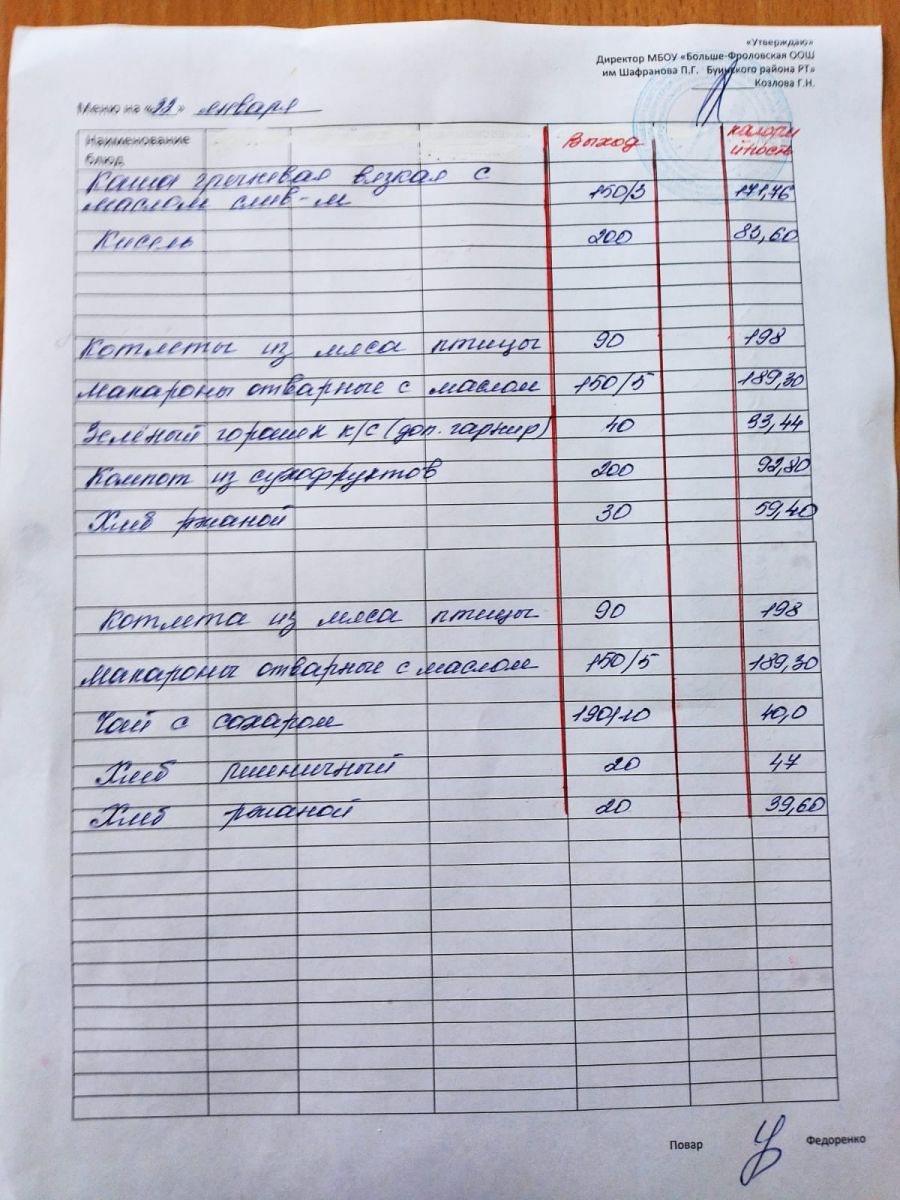 «Утверждаю»
Директор МБОУ «Больше-Фроловская ООШ
им Шафранова П.Г. Буинского района РТ»
Козлова Г.Н.
Меню на «22» января
Наименование блюд Выход калорийность
Каша гречневая вязкая с
маслом слив-м 150/3 171,76
Кисель 200 83,60
Котлеты из мяса птицы 90 198
Макароны отварные с маслом 150/5 189,30
Зелёный горошек к/с (доп. гарнир) 40 33,44
Компот из сухофруктов 200 92,80
Хлеб ржаной 30 59,40
Котлета из мяса птицы 90 198
Макароны отварные с маслом 150/5 189,30
Чай с сахаром 190/10 40,0
Хлеб пшеничный 20 47
Хлеб ржаной 20 39,60
Повар Федоренко